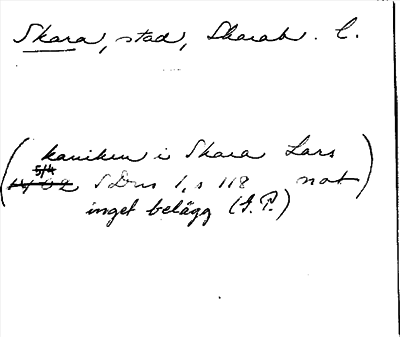 Skara, stad, Skarab. l.
(kaniken i Skara Lars
5/4
1402 SDns 1, s 118 not)
inget belägg (S.P.)